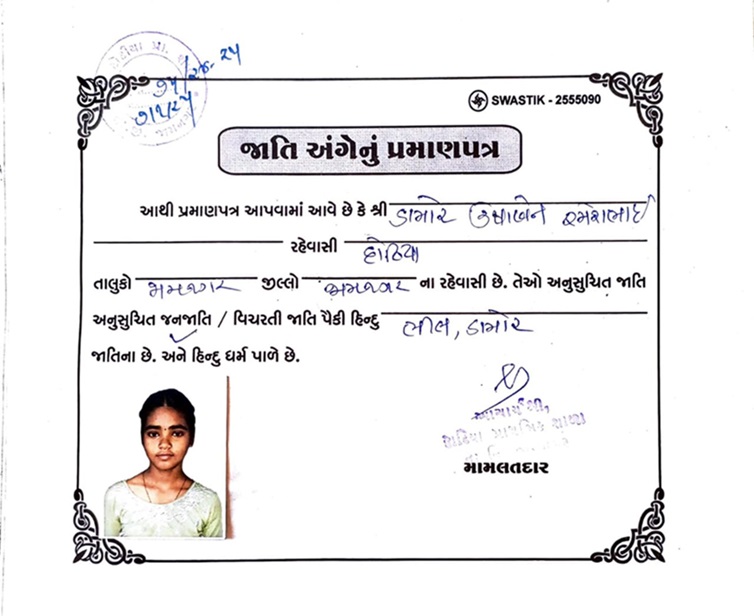 SWASTIK - 2555090
જાતિ અંગેનું પ્રમાણપત્ર
આથી પ્રમાણપત્ર આપવામાં આવે છે કે શ્રી ડામોર રમેશભાઈ
રહેવાસી
તાલુકો જામનગર જીલ્લો જામનગર ના રહેવાસી છે. તેઓ અનુસુચિત જાતિ
અનુસુચિત જનજાતિ / વિચરતી જાતિ પૈકી હિન્દુ ભીલ, ડામોર
જાતિના છે. અને હિન્દુ ધર્મ પાળે છે.
આચાર્યશ્રી,
મામલતદાર